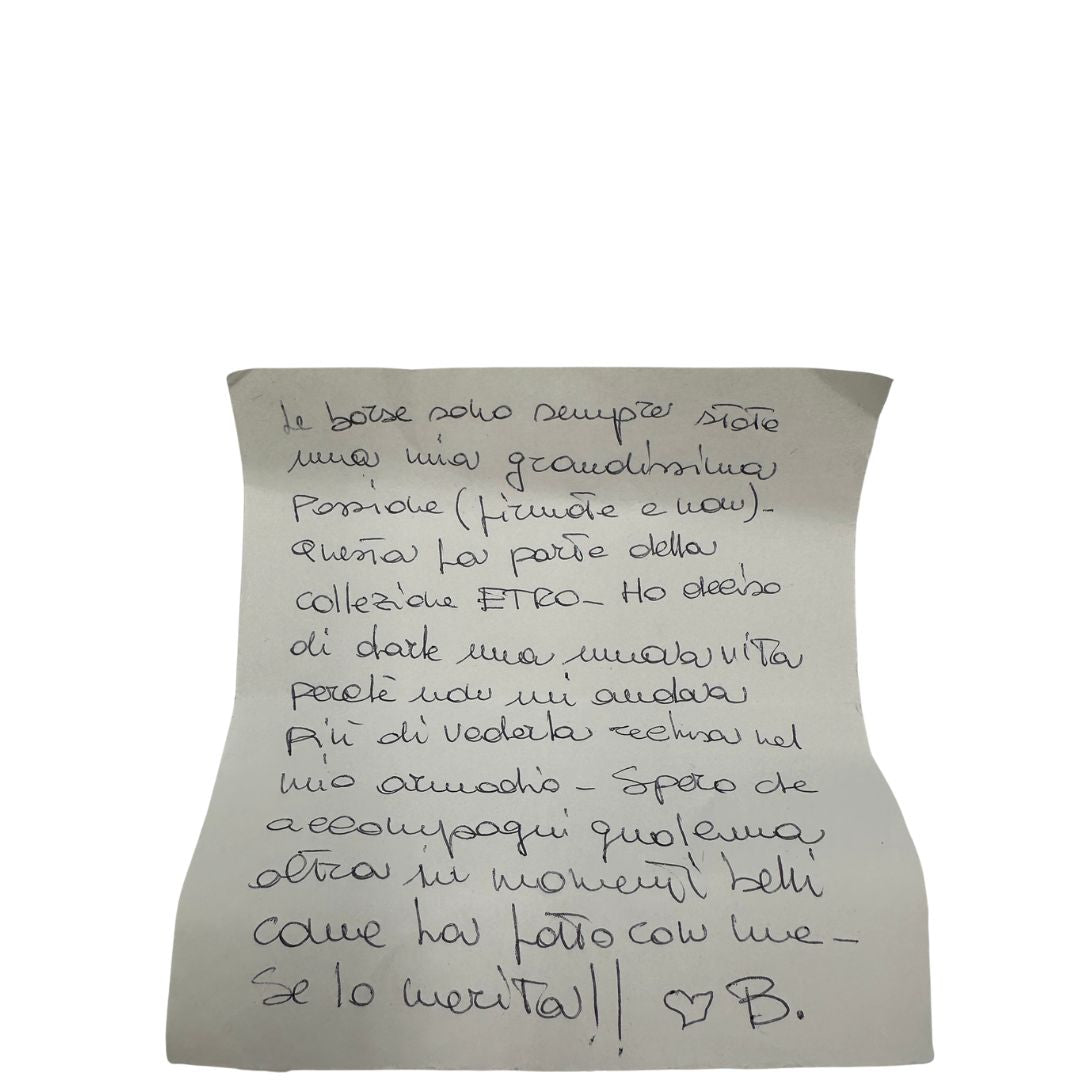 Le borse sono sempre state
una mia grandissima
Passione (firmate e non)-
Questa fa parte della
collezione ETRO- Ho deciso
di darle una nuova vita
perché non mi andava
più di vederla reclusa nel
mio armadio - Spero che
accompagni qualcuna
altra in momenti belli
come ha fatto con me-
Se lo merita!! ♡ B.